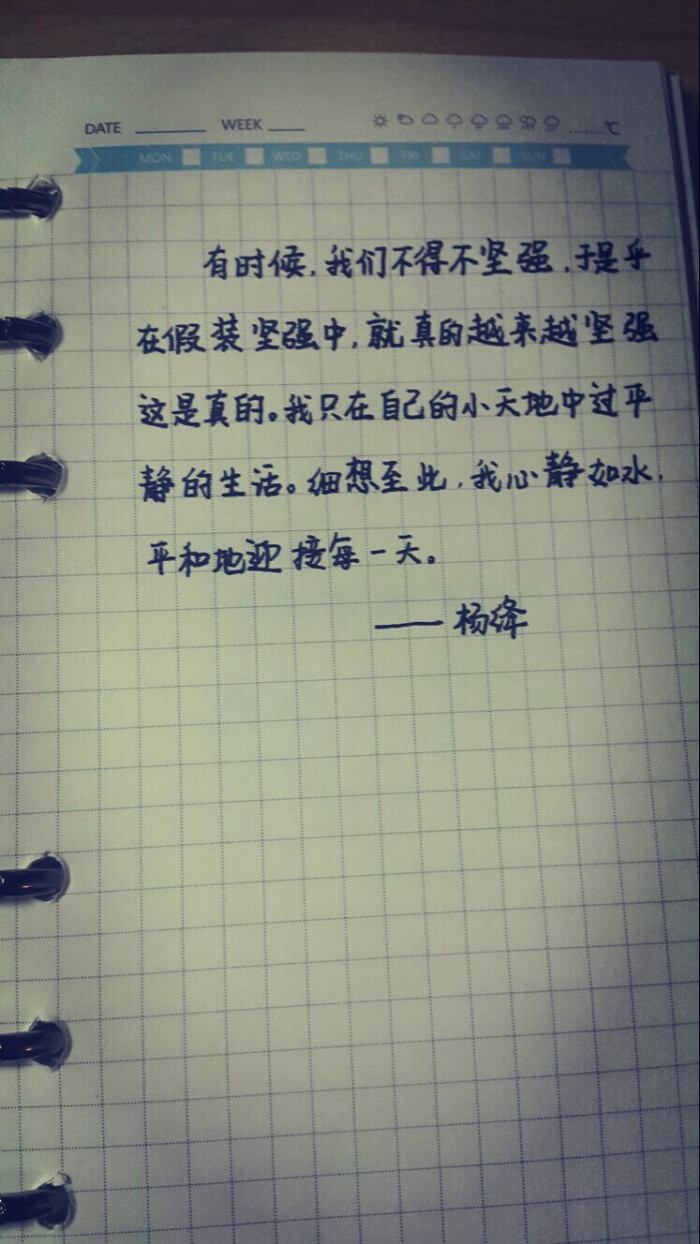 DATE WEEK ℃
MON TUE WED THU FRI SAT SUN
有时候,我们不得不坚强,于是乎
在假装坚强中,就真的越来越坚强
这是真的。我只在自己的小天地中过平
静的生活。细想至此,我心静如水,
平和地迎接每一天。
—— 杨绛